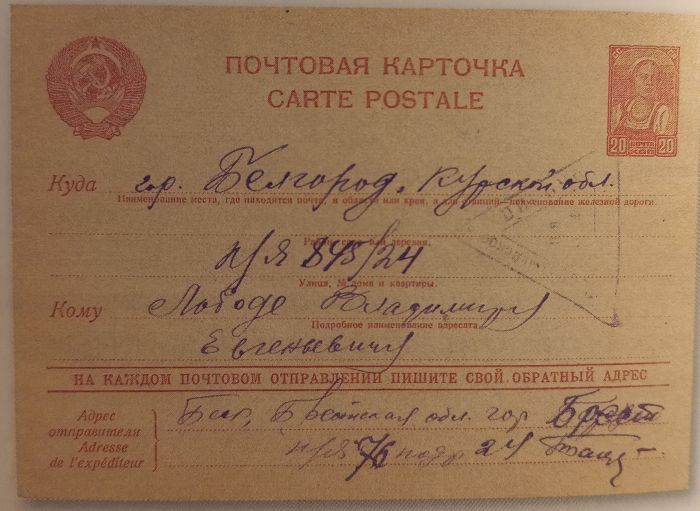 ПОЧТОВАЯ КАРТОЧКА
CARTE POSTALE
20 ПОЧТА СССР 20
Куда гор. Белгород. Курской обл.
Наименование места, где находится почта, и области или края, а для станций—наименование железной дороги.
Район, село или деревня.
п/я 845/24
Улица, № дома и квартиры.
Кому Лободе Владимиру
Подробное наименование адресата.
Евгеньевичу
НА КАЖДОМ ПОЧТОВОМ ОТПРАВЛЕНИИ ПИШИТЕ СВОЙ ОБРАТНЫЙ АДРЕС
Адрес отправителя Брестская обл. гор. Брест
Adresse de l'expéditeur п/я подр 24